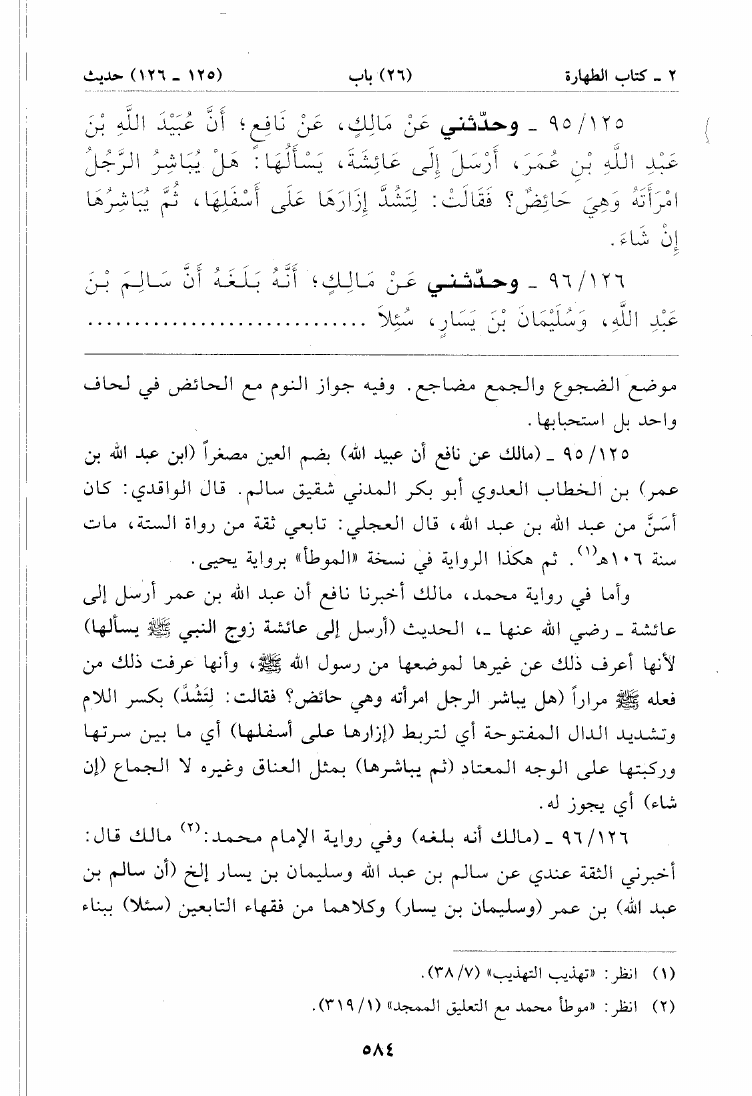 ٢ ـ كتاب الطهارة (٢٦) باب (١٢٥ ـ ١٢٦) حديث
٩٥/١٢٥ ـ وحدّثني عَنْ مَالِكٍ، عَنْ نَافِعٍ؛ أَنَّ عُبَيْدَ اللَّهِ بْنَ
عَبْدِ اللَّهِ بْنِ عُمَرَ، أَرْسَلَ إِلَى عَائِشَةَ، يَسْأَلُهَا: هَلْ يُبَاشِرُ الرَّجُلُ
امْرَأَتَهُ وَهِيَ حَائِضٌ؟ فَقَالَتْ: لِتَشُدَّ إِزَارَهَا عَلَى أَسْفَلِهَا، ثُمَّ يُبَاشِرُهَا
إِنْ شَاءَ.
٩٦/١٢٦ ـ وحدّثني عَنْ مَالِكٍ؛ أَنَّهُ بَلَغَهُ أَنَّ سَالِمَ بْنَ
عَبْدِ اللَّهِ، وَسُلَيْمَانَ بْنَ يَسَارٍ، سُئِلَا ..............................
موضع الضجوع والجمع مضاجع. وفيه جواز النوم مع الحائض في لحاف
واحد بل استحبابها.
٩٥/١٢٥ ـ (مالك عن نافع أن عبيد الله) بضم العين مصغراً (ابن عبد الله بن
عمر) بن الخطاب العدوي أبو بكر المدني شقيق سالم. قال الواقدي: كان
أسَنَّ من عبد الله بن عبد الله، قال العجلي: تابعي ثقة من رواة الستة، مات
سنة ١٠٦هـ(١). ثم هكذا الرواية في نسخة «الموطأ» برواية يحيى.
وأما في رواية محمد، مالك أخبرنا نافع أن عبد الله بن عمر أرسل إلى
عائشة ـ رضي الله عنها ـ، الحديث (أرسل إلى عائشة زوج النبي ﷺ يسألها)
لأنها أعرف ذلك عن غيرها لموضعها من رسول الله ﷺ، وأنها عرفت ذلك من
فعله ﷺ مراراً (هل يباشر الرجل امرأته وهي حائض؟ فقالت: لِتَشُدَّ) بكسر اللام
وتشديد الدال المفتوحة أي لتربط (إزارها على أسفلها) أي ما بين سرتها
وركبتها على الوجه المعتاد (ثم يباشرها) بمثل العناق وغيره لا الجماع (إن
شاء) أي يجوز له.
٩٦/١٢٦ ـ (مالك أنه بلغه) وفي رواية الإمام محمد:(٢) مالك قال:
أخبرني الثقة عندي عن سالم بن عبد الله وسليمان بن يسار إلخ (أن سالم بن
عبد الله) بن عمر (وسليمان بن يسار) وكلاهما من فقهاء التابعين (سئلا) ببناء
(١) انظر: «تهذيب التهذيب» (٣٨/٧).
(٢) انظر: «موطأ محمد مع التعليق الممجد» (٣١٩/١).
٥٨٤